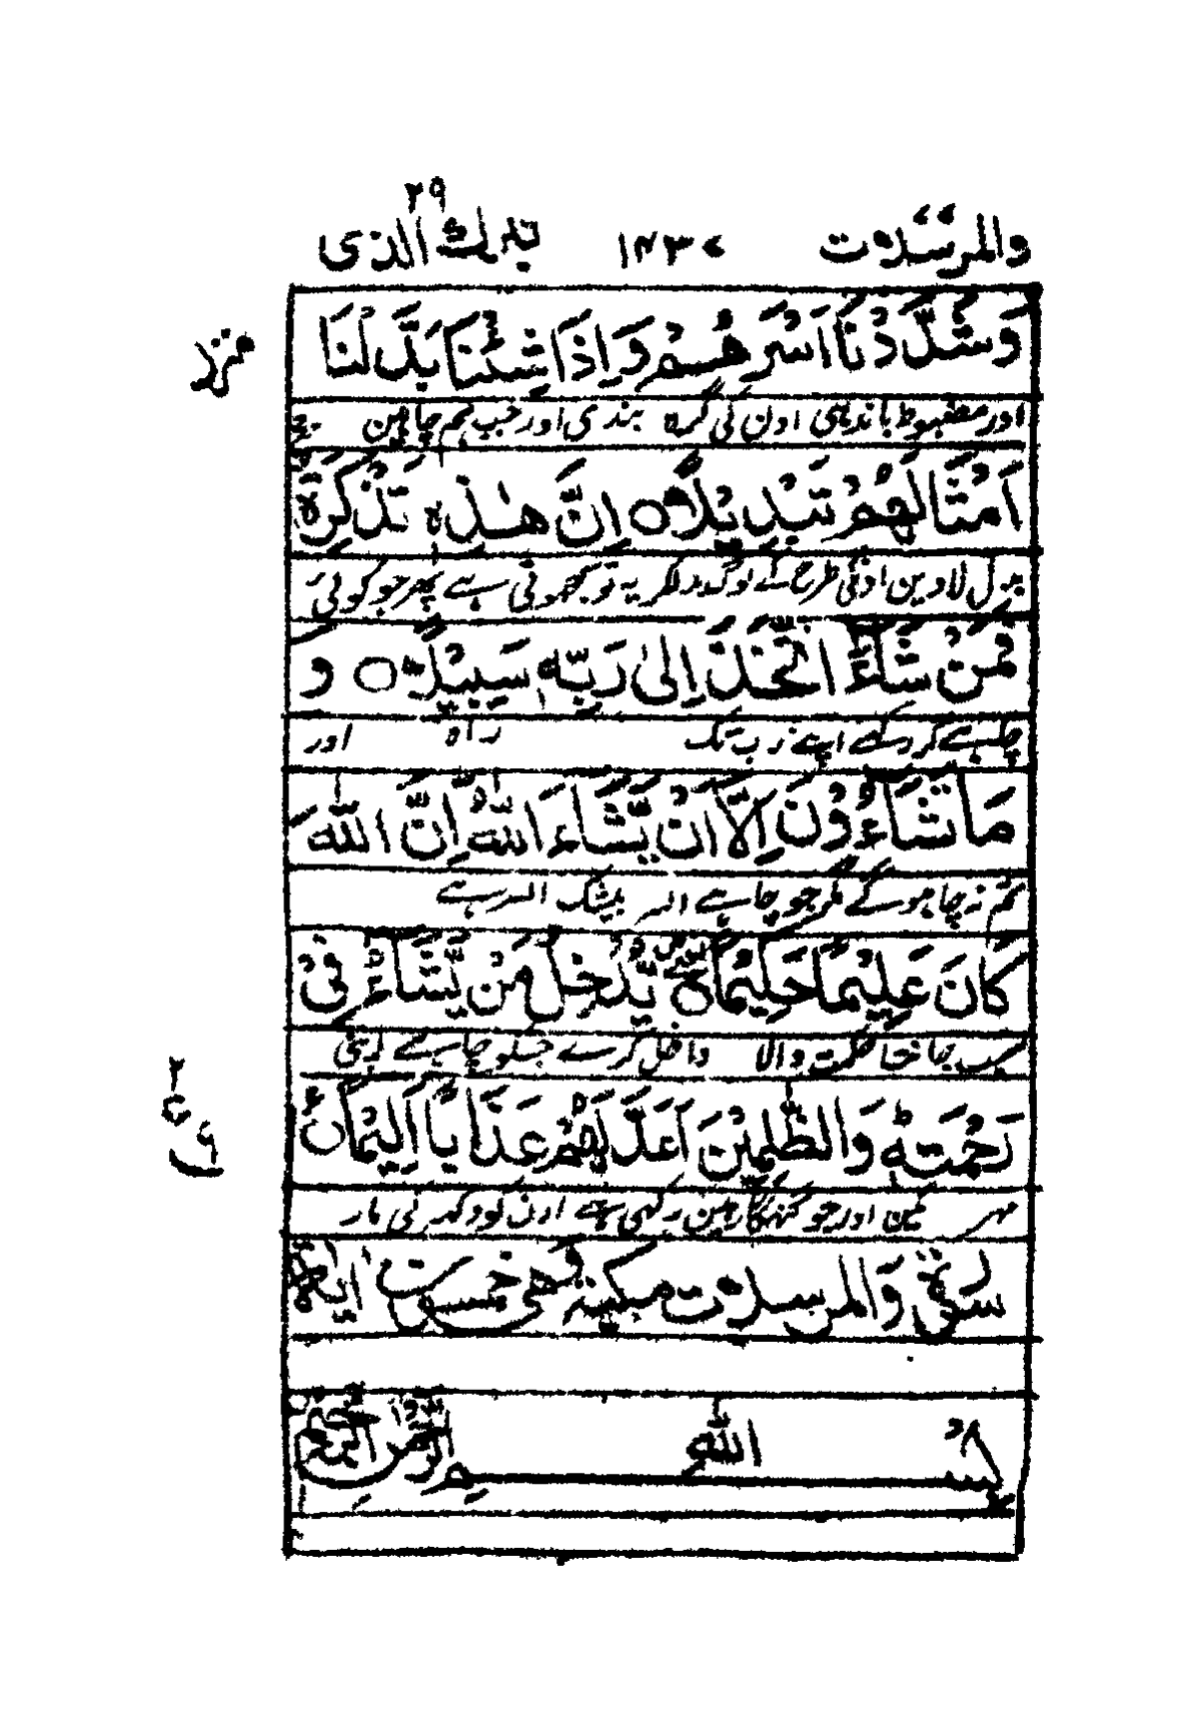 ۲۹
والمرسلات ۱۴۳۷ تبٰرك الذى
وَشَدَدْنَا اَسْرَهُمْ وَاِذَا شِئْنَا بَدَّلْنَا
اور مضبوط باندھی اون کی گرہ بندی اور جب ہم چاہین
اَمْثَالَهُمْ تَبْدِيْلًا ○ اِنَّ هٰذِهٖ تَذْكِرَةٌ
بدل لاوین اونکی طرح کے لوگ بدلکر یہ تو سمجھوتی ہے پھر جو کوئی
فَمَنْ شَآءَ اتَّخَذَ اِلٰى رَبِّهٖ سَبِيْلًا ○ وَ
چاہے کر رکھے اپنے رب تک راہ اور
مَا تَشَآءُوْنَ اِلَّآ اَنْ يَّشَآءَ اللّٰهُ اِنَّ اللّٰهَ
تم نہ چاہوگے مگر جو چاہے اللہ بیشک اللہ ہے
كَانَ عَلِيْمًا حَكِيْمًا ○ يُّدْخِلُ مَنْ يَّشَآءُ فِىْ
سب جانتا حکمت والا داخل کرے جسکو چاہے اپنی
رَحْمَتِهٖ وَالظّٰلِمِيْنَ اَعَدَّ لَهُمْ عَذَابًا اَلِيْمًا ○
مہر مین اور جو گنہگار ہین رکھی ہے اون کو دکھ کی مار
سورة والمرسلات مكية وهى خمسون اية
بسم الله الرحمن الرحيم